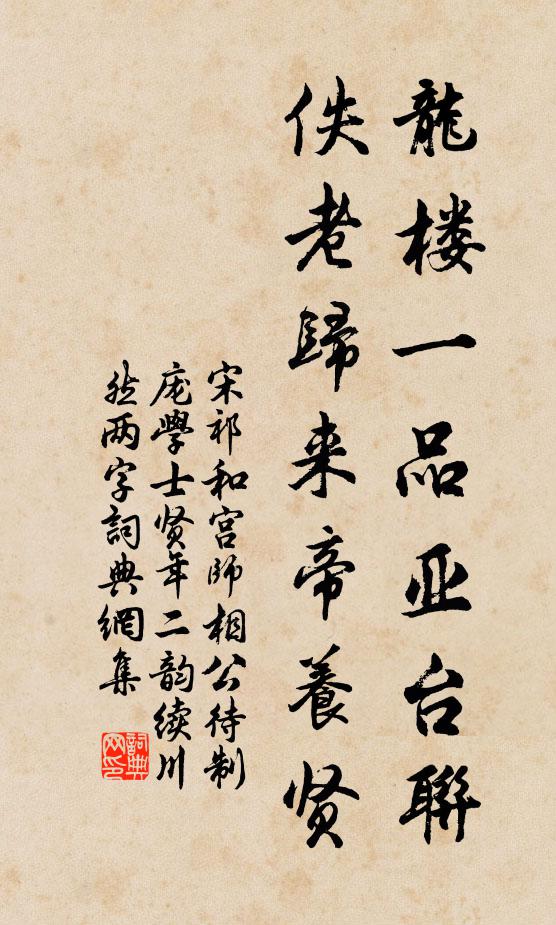 龍楼一品亚台聯
佚老歸来帝養賢
宋祁和宫師相公待制
庞學士贤年二韵续川
然两字詞典網集
詞典网印